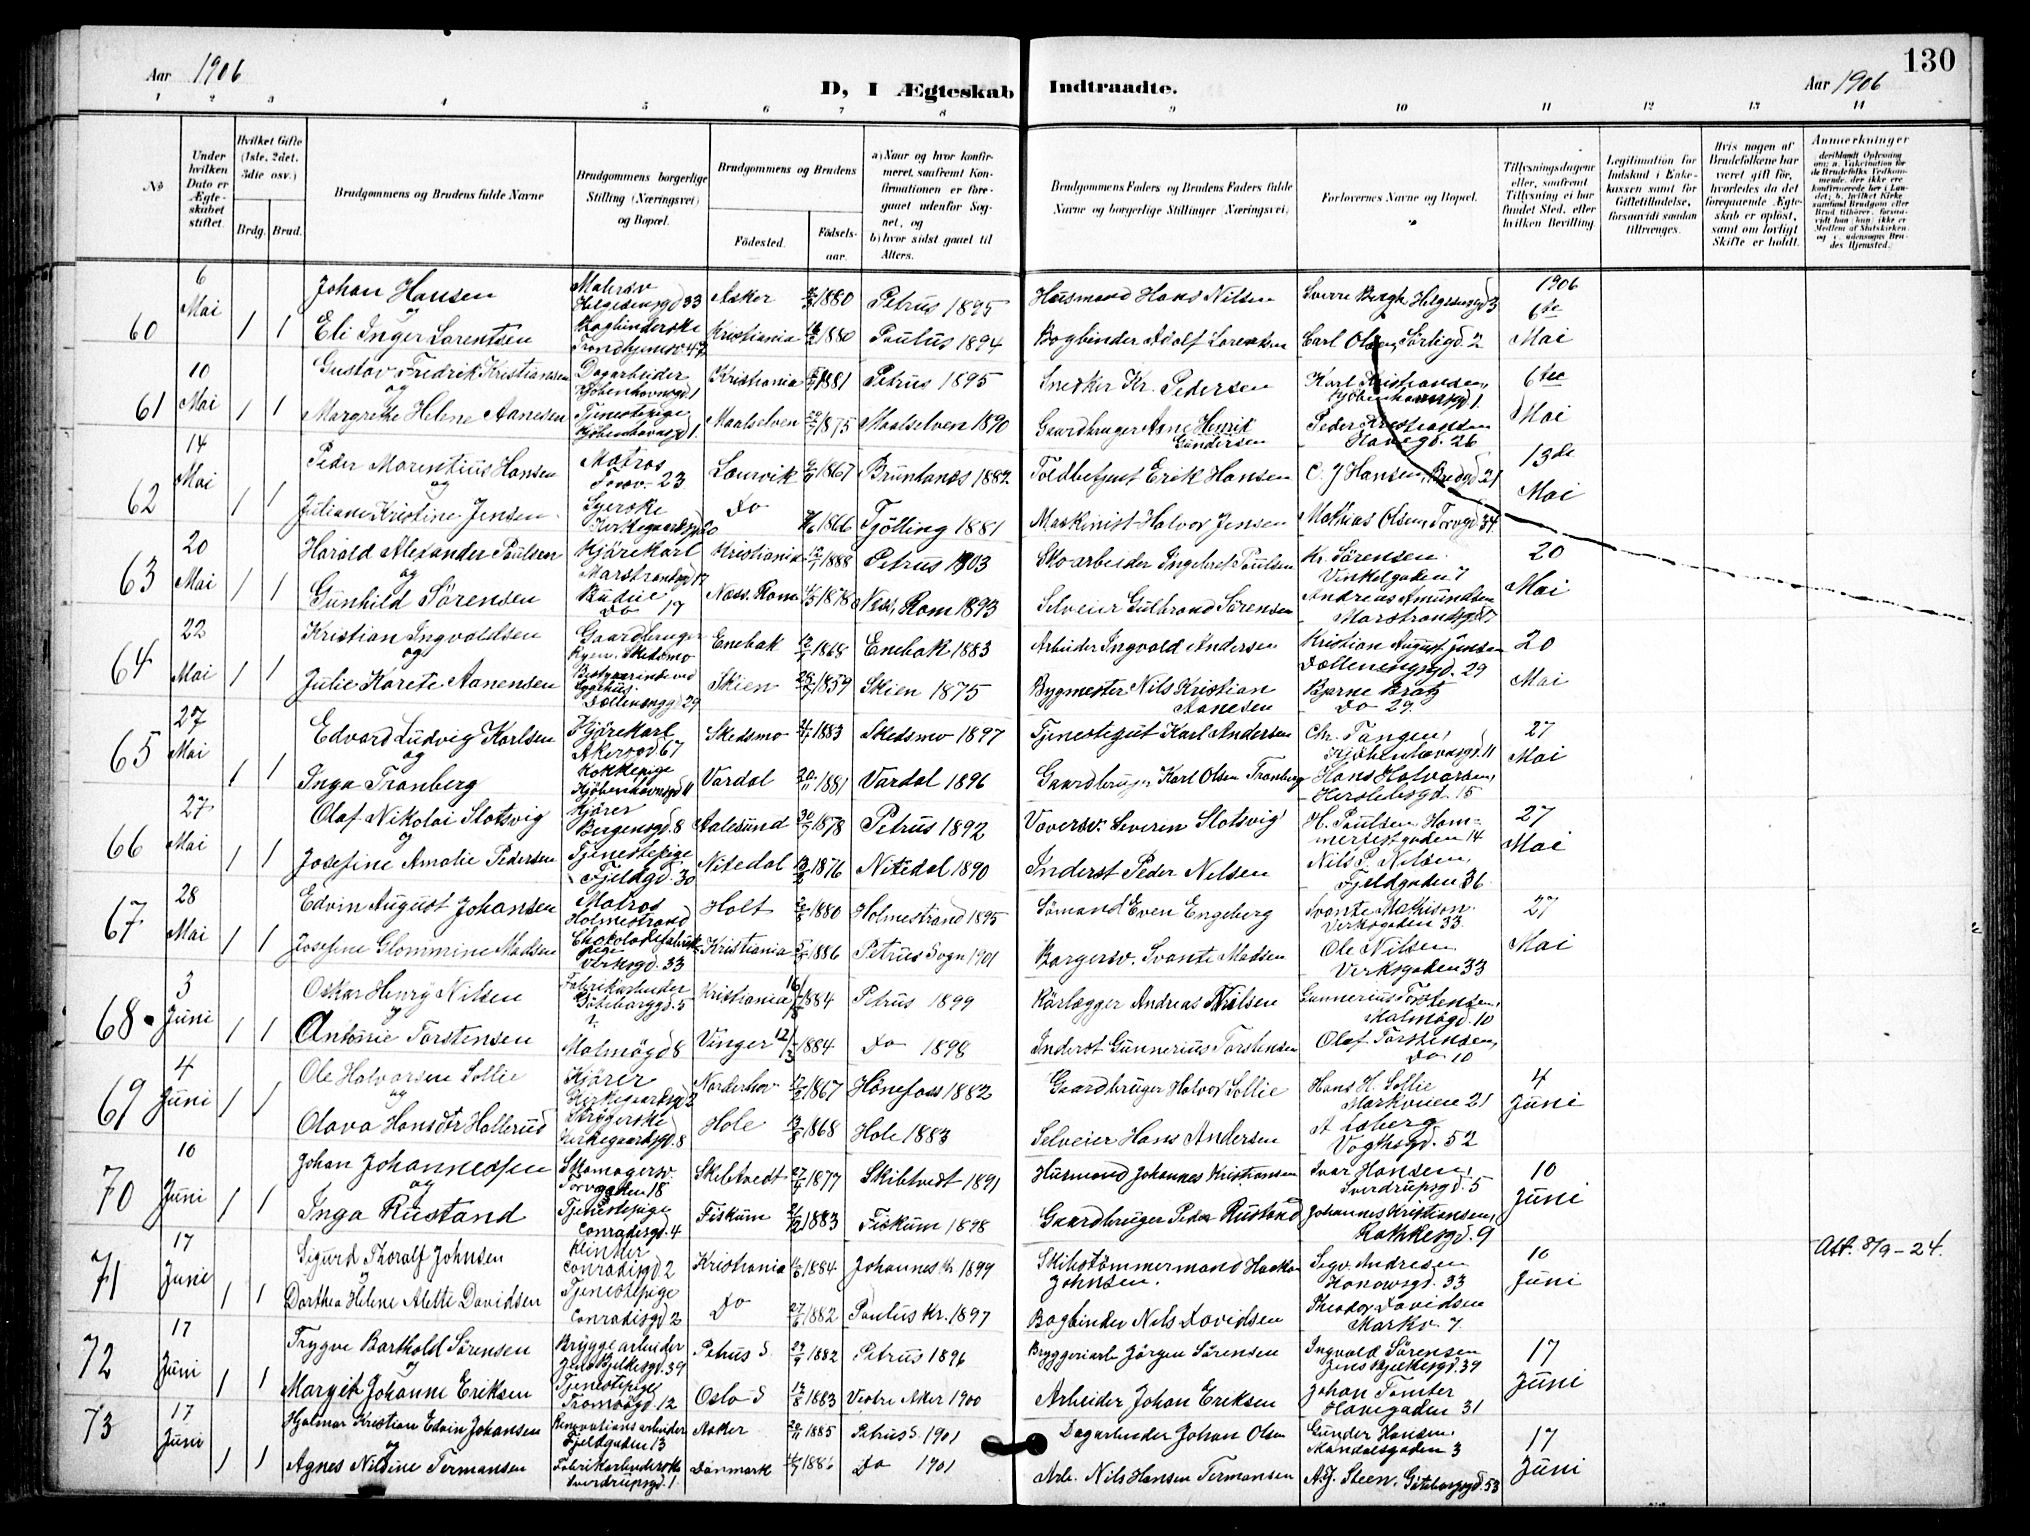 130
Aar 1906
D, I Ægteskab Indtraadte.
Aar 1906
1 2 3 4 5 6 7 8 9 10 11 12 13 14
No
Under hvilken Dato er Ægteskabet stiftet.
Hvilket Gifte (1ste, 2det, 3die osv.)
Brdg. Brud.
Brudgommens og Brudens fulde Navne
Brudgommens borgerlige Stilling (Næringsvei) og Bopæl.
Brudgommens og Brudens
Fødested.
Fødsels-aar.
a) Naar og hvor konfirmeret, saafremt Konfirmationen er foregaaet udenfor Sognet, og
b) hvor sidst gaaet til Alters.
Brudgommens Faders og Brudens Faders fulde Navne og borgerlige Stillinger (Næringsvei).
Forlovernes Navne og Bopæl.
Tillysningsdagene eller, saafremt Tillysning ei har fundet Sted, efter hvilken Bevilling.
Legitimation for Indskud i Enkekassen samt for Giftetilladelse, forsaavidt saadan tiltrænges.
Hvis nogen af Brudefolkene har været gift før, hvorledes da det foregaaende Ægteskab er opløst, samt om lovligt Skifte er holdt.
Anmerkninger
60 6 Mai 1 1
Johan Hansen Malersv Helgesensgd 33 Asker 1880 Petrus 1895 Husmand Hans Nilsen Sverre Bergh Helgesensgd 3 1906 6te Mai
og
Eli Inger Lorentsen Bogbinderske Kristiania 1880 Paulus 1894 Bogbinder Adolf Lorentsen Carl Olsen, Sørligd. 2
61 10 Mai 1 1
Gustav Fredrik Kristiansen Dagarbeider Kjøbenhavnsgd 1 Kristiania 1881 Petrus 1895 Snedker Kr. Pedersen Karl Kristiansen, Kjøbenhavnsgd 1. 6te Mai
og
Margrethe Helene Aanesen Tjenestepige Kjøbenhavnsgd 1. Maalselven 1875 Maalselven 1890 Gaardbruger Arne Henrik Gundersen Peder Kristiansen Havegd. 26
62 14 Mai 1 1
Peder Marentius Hansen Matros Torvv. 23 Laurvik 1867 Brunlanæs 1882 Toldbetjent Erik Hansen O. J Hansen, Bredgd 21 13de Mai
og
Juliane Kristine Jensen Syerske Kirkegaardsgd 20 Do 1866 Tjølling 1881 Maskinist Halvor Jensen Mathias Olsen, Torvgd 34
63 20 Mai 1 1
Harald Alexander Paulsen Kjørekarl Marstrandgd 17 Kristiania 1888 Petrus 1903 Skoarbeider Ingebret Paulsen Kr. Sørensen Vinkelgaden 7 20 Mai
og
Gunhild Sørensen Budeie Do 17 Næss. Rom 1878 Næss, Rom 1893 Selveier Gulbrand Sørensen Andreas Amundsen Marstrandsgd 17
64 22 Mai 1 1
Kristian Ingvaldsen Gaardbruger Skedsmo Enebak 1868 Enebak 1883 Arbeider Ingvald Andersen Kristian August Jensen Dællenenggd. 29 20 Mai
og
Julie Karete Aanensen Bestyrerinde ved Sygehus Dællenenggd 29 Skien 1859 Skien 1875 Bygmester Nils Kristian Aanesen Bjarne Bratz Do 29.
65 27 Mai 1 1
Edvard Ludvig Karlsen Kjørekarl Akersvd 67 Skedsmo 1883 Skedsmo 1897 Tjenestegut Karl Andersen Chr. Tangen, Kjøbenhavnsgd. 11 27 Mai
og
Inga Tranberg Kokkepige Kjøbenhavnsgd 11 Vardal 1881 Vardal 1896 Gaardbruger Karl Olsen Tranberg Hans Halvorsen, Herslebsgd. 15
66 27 Mai 1 1
Olaf Nikolai Slotsvig Kjører Bergensgd. 8 Aalesund 1878 Petrus 1892 Væversv. Severin Slotsvig H. Paulsen, Hammerfestgaden 14 27 Mai
og
Josefine Amalie Pedersen Tjenestepige Fjeldgd. 30 Nitedal 1876 Nitedal 1890 Inderst Peder Nelsen Nils P. Nilsen, Fjeldgaden 36
67 28 Mai 1 1
Edvin August Johansen Matros Holmestrand Holt 1880 Holmestrand 1895 Sømand Even Engeberg Svante Mathison Verksgaden 33 27 Mai
Josefine Glommine Madsen Chokoladefabrikpige Verksgd. 33 Kristiania 1886 Petrus Sogn 1901 Borgersv. Svante Madsen Ole Nilsen Verksgaden 33
68 3 Juni 1 1
Oskar Henry Nilsen Fabrikarbeider Gøteborggd. 5 Kristiania 1884 Petrus 1899 Rørlægger Andreas Nilsen Gunnerius Torstensen, Malmøgd. 10
og
Antonie Torstensen Malmøgd 8 Vinger 12/3 1884 Do 1898 Inderst Gunnerius Torstensen Olaf Torstensen, Do 10
69 4 Juni 1 1
Ole Halvorsen Sollie Kjører Kirkegaardsgd 2 Norderhov 1867 Hønefoss 1882 Gaardbruger Halvor Sollie Hans H. Sollie Markveien 21 4 Juni
og
Olava Hansdtr Hallerud Strygerske Kirkegaardsgd. 8 Hole 1868 Hole 1883 Selveier Hans Andersen A Isberg Vogtsgd. 52
70 10 Juni 1 1
Johan Johannessen Skomagersv. Torvgaden 18 Skibtvedt 1877 Skibtvedt 1891 Husmand Johannes Kristiansen Ivar Hansen, Sverdrupsgd. 5 10 Juni
og
Inga Rustand Tjenestepige Conradisgd. 4 Fiskum 1883 Fiskum 1898 Gaardbruger Peder Rustand Johannes Kristiansen, Rathkesgd. 9
71 17 Juni 1 1
Sigurd Thoralf Johnsen Klinker Conradisgd 2 Kristiania 1884 Johannes K. 1899 Skibstømmermand Haakon Johnsen. Sigv. Andresen Hanowsgd. 33 10 Juni Att. 8/9-24.
og
Dorthea Helene Alette Davidsen Tjenestepige Conradisgd 2 Do 1882 Paulus Kr. 1897 Bogbinder Nils Davidsen Theodor Davidsen Markv. 7.
72 17 Juni 1 1
Trygve Barthold Sørensen Bryggearbeider Jens Bjelkesgd. 39 Petrus S 1882 Petrus 1896 Bryggeriarb Jørgen Sørensen Ingvald Sørensen Jens Bjelkesgd. 39 17 Juni
og
Margit Johanne Eriksen Tjenestepige Tromsøgd. 12 Oslo S 1883 Vestre Aker 1900 Arbeider Johan Eriksen Johan Tomter Havegaden 31
73 17 Juni 1 1
Hjalmar Kristian Edvin Johansen Renovationsarbeider Fjeldgaden 13 Asker 1885 Petrus S. 1901 Dagarbeider Johan Olsen Gunder Hansen, Mandalsgaden 3 17 Juni
og
Agnes Nilsine Termansen Fabrikarbeiderske Sverdrupsgd. 1. Danmark 1886 Do 1901 Arb. Nils Hansen Termansen A. J. Steen, Gøteborggd. 53